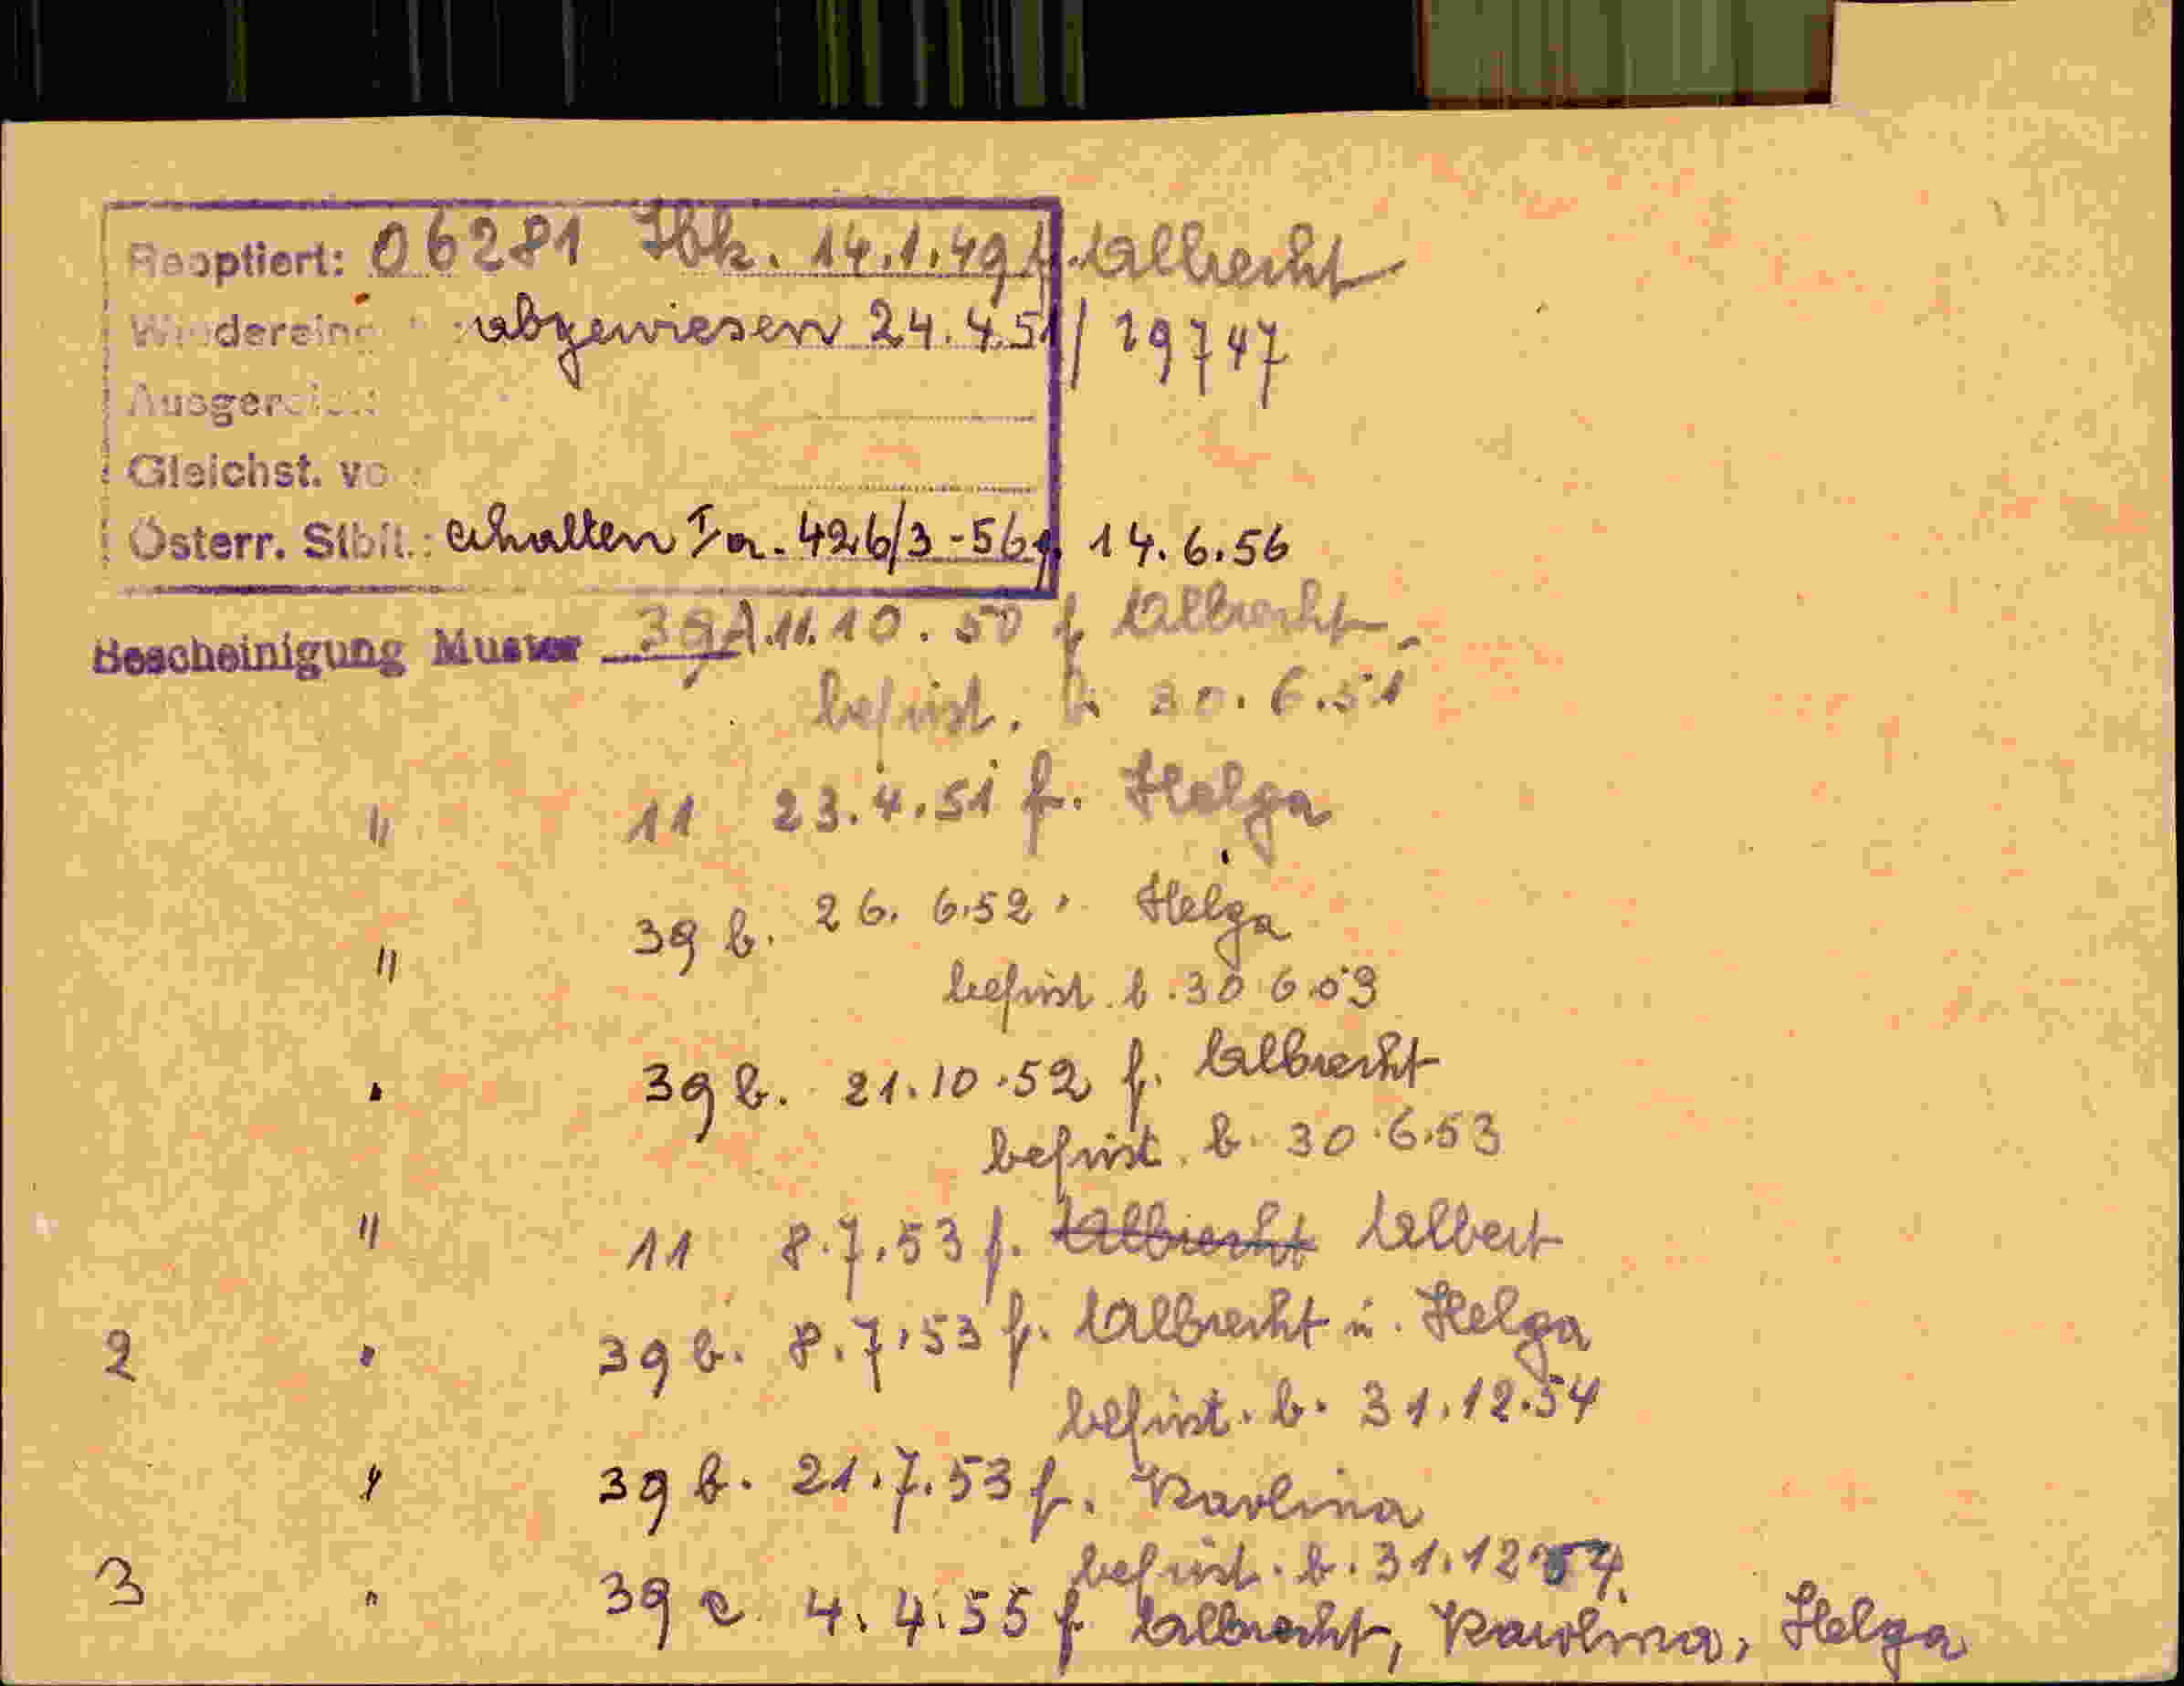 Reoptiert: 06281 Ibk. 14.1.49 f. Albrecht
abgewiesen 24.4.51 / 19747
Ausgereist:
Gleichst. vo :
Österr. Stbü.: erhalten Ia. 426/3-56 f. 14.6.56
Bescheinigung Muster 39A. 11.10.50 f Albrecht
befrist. b 30.6.51
" 11 23.4.51 f. Helga
" 39 b. 26. 6.52 " Helga
befrist. b. 30.6.53
" 39 b. 21.10.52 f. Albrecht
befrist. b. 30.6.53
" 11 8.7.53 f. Albrecht Albert
2 " 39 b. 8.7.53 f. Albrecht u. Helga
befrist. b. 31.12.54
" 39 b. 21.7.53 f. Karolina
befrist. b. 31.12.54
3 " 39 c 4.4.55 f Albrecht, Karolina, Helga